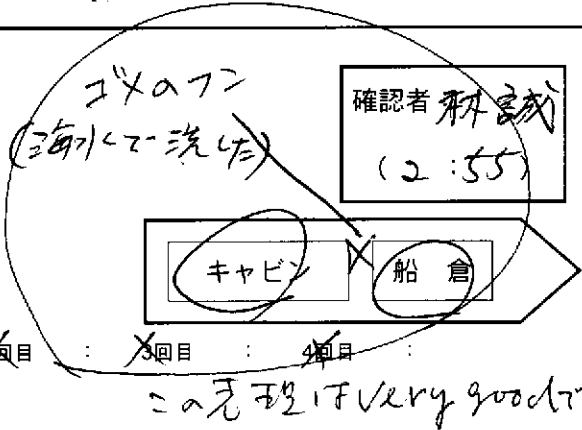 ゴメのフン
(海水で洗した)
確認者 林 誠
(2:55)
キャビン 船倉
回目 : 3回目 : 4回目 :
この表現はVery goodで